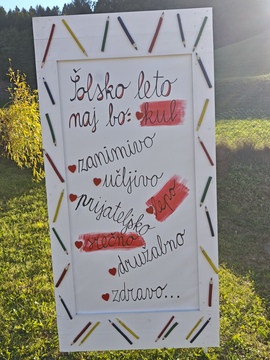 Šolsko leto
naj bo: kul
zanimivo
učljivo
prijateljsko
lepo
srečno
družabno
zdravo...